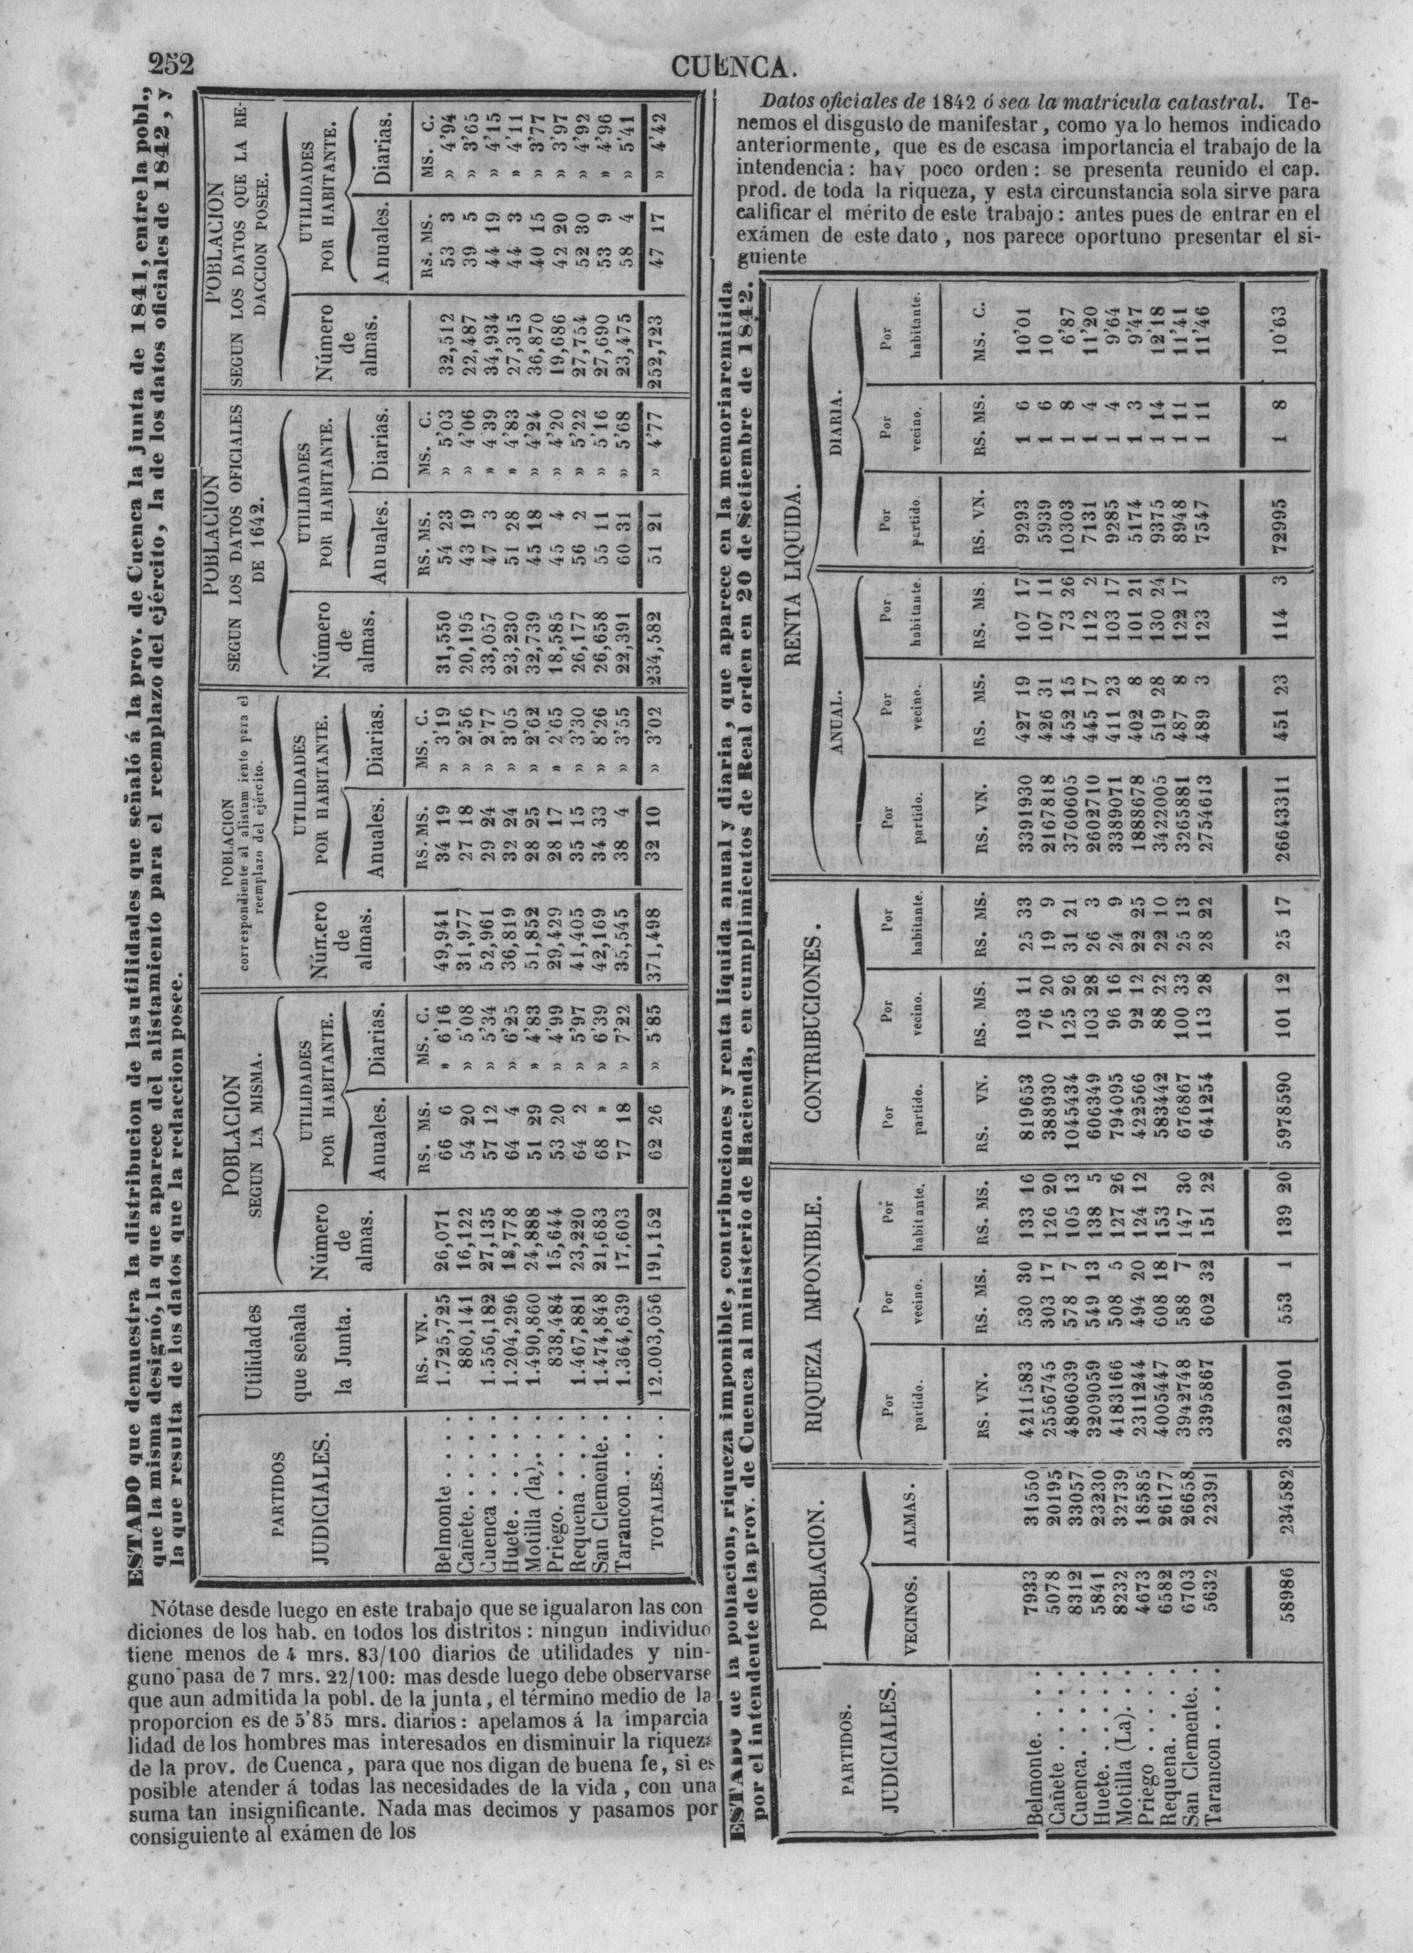 252
CUENCA.
ESTADO que demuestra la distribucion de las utilidades que señaló á la prov. de Cuenca la junta de 1841, entre la pobl.,
que la misma designó, la que aparece del alistamiento para el reemplazo del ejército, la de los datos oficiales de 1842, y
la que resulta de los datos que la redaccion posee.
PARTIDOS JUDICIALES. | Utilidades que señala la Junta. | POBLACION SEGUN LA MISMA. | POBLACION correspondiente al alistamiento para el reemplazo del ejército. | POBLACION SEGUN LOS DATOS OFICIALES DE 1642. | POBLACION SEGUN LOS DATOS QUE LA REDACCION POSEE.
Número de almas. | UTILIDADES POR HABITANTE. | Número de almas. | UTILIDADES POR HABITANTE. | Número de almas. | UTILIDADES POR HABITANTE. | Número de almas. | UTILIDADES POR HABITANTE.
Anuales. | Diarias. | Anuales. | Diarias. | Anuales. | Diarias. | Anuales. | Diarias.
RS. VN. | RS. MS. | MS. C. | RS. MS. | MS. C. | RS. MS. | MS. C. | RS. MS. | MS. C.
Belmonte . . . . 1.725,725 | 26,071 | 66 6 | » 6'16 | 49,941 | 34 19 | » 3'19 | 31,550 | 54 23 | » 5'03 | 32,512 | 53 3 | » 4'94
Cañete. . . . . 880,141 | 16,122 | 54 20 | » 5'08 | 31,977 | 27 18 | » 2'56 | 20,195 | 43 19 | » 4'06 | 22,487 | 39 5 | » 3'65
Cuenca . . . . . 1.556,182 | 27,135 | 57 12 | » 5'34 | 52,961 | 29 24 | » 2'77 | 33,057 | 47 3 | » 4 39 | 34,934 | 44 19 | » 4'15
Huete. . . . . . 1.204,296 | 18,778 | 64 4 | » 6'25 | 36,819 | 32 24 | » 3'05 | 23,230 | 51 28 | » 4'83 | 27,315 | 44 3 | » 4'11
Motilla (la). . . . 1.490,860 | 24,888 | 51 29 | » 4'83 | 51,852 | 28 25 | » 2'62 | 32,739 | 45 18 | » 4'24 | 36,870 | 40 15 | » 3'77
Priego. . . . . 838,484 | 15,644 | 53 20 | » 4'99 | 29,429 | 28 17 | » 2'65 | 18,585 | 45 4 | » 4'20 | 19,686 | 42 20 | » 3'97
Requena . . . . 1.467,881 | 23,220 | 64 2 | » 5'97 | 41,405 | 35 15 | » 3'30 | 26,177 | 56 2 | » 5'22 | 27,754 | 52 30 | » 4'92
San Clemente. . 1.474,848 | 21,683 | 68 » | » 6'39 | 42,169 | 34 33 | » 8'26 | 26,658 | 55 11 | » 5'16 | 27,690 | 53 9 | » 4'96
Tarancon. . . . 1.364,639 | 17,603 | 77 18 | » 7'22 | 35,545 | 38 4 | » 3'55 | 22,391 | 60 31 | » 5'68 | 23,475 | 58 4 | » 5'41
TOTALES. . . . 12.003,056 | 191,152 | 62 26 | » 5'85 | 371,498 | 32 10 | » 3'02 | 234,582 | 51 21 | » 4'77 | 252,723 | 47 17 | » 4'42
Nótase desde luego en este trabajo que se igualaron las con
diciones de los hab. en todos los distritos : ningun individuo
tiene menos de 4 mrs. 83/100 diarios de utilidades y nin-
guno pasa de 7 mrs. 22/100: mas desde luego debe observarse
que aun admitida la pobl. de la junta , el término medio de la
proporcion es de 5'85 mrs. diarios : apelamos á la imparcia
lidad de los hombres mas interesados en disminuir la riqueza
de la prov. de Cuenca , para que nos digan de buena fe, si es
posible atender á todas las necesidades de la vida , con una
suma tan insignificante. Nada mas decimos y pasamos por
consiguiente al exámen de los
Datos oficiales de 1842 ó sea la matrícula catastral. Te-
nemos el disgusto de manifestar, como ya lo hemos indicado
anteriormente, que es de escasa importancia el trabajo de la
intendencia : hay poco orden : se presenta reunido el cap.
prod. de toda la riqueza, y esta circunstancia sola sirve para
calificar el mérito de este trabajo : antes pues de entrar en el
exámen de este dato , nos parece oportuno presentar el si-
guiente
ESTADO de la poblacion, riqueza imponible, contribuciones y renta liquida anual y diaria , que aparece en la memoria remitida
por el intendente de la prov. de Cuenca al ministerio de Hacienda, en cumplimientos de Real orden en 20 de Setiembre de 1842.
PARTIDOS. JUDICIALES. | POBLACION. | RIQUEZA IMPONIBLE. | CONTRIBUCIONES. | RENTA LIQUIDA.
ANUAL. | DIARIA.
VECINOS. | ALMAS. | Por partido. | Por vecino. | Por habitante. | Por partido. | Por vecino. | Por habitante. | Por partido. | Por vecino. | Por habitante. | Por partido. | Por vecino. | Por habitante.
RS. VN. | RS. MS. | RS. MS. | RS. VN. | RS. MS. | RS. MS. | RS. VN. | RS. MS. | RS. MS. | RS. VN. | RS. MS. | MS. C.
Belmonte. . . . 7933 | 31550 | 4211583 | 530 30 | 133 16 | 819653 | 103 11 | 25 33 | 3391930 | 427 19 | 107 17 | 9293 | 1 6 | 10'01
Cañete . . . . 5078 | 20195 | 2556745 | 303 17 | 126 20 | 388930 | 76 20 | 19 9 | 2167818 | 426 31 | 107 11 | 5939 | 1 6 | 10
Cuenca. . . . . 8312 | 33057 | 4806039 | 578 7 | 105 13 | 1045434 | 125 26 | 31 21 | 3760605 | 452 15 | 73 26 | 10303 | 1 8 | 6'87
Huete. . . . . 5841 | 23230 | 3209059 | 549 13 | 138 5 | 606349 | 103 28 | 26 3 | 2602710 | 445 17 | 112 2 | 7131 | 1 4 | 11'20
Motilla (La). . . 8232 | 32739 | 4183166 | 508 5 | 127 26 | 794095 | 96 16 | 24 9 | 3389071 | 411 23 | 103 17 | 9285 | 1 4 | 9'64
Priego . . . . . 4673 | 18585 | 2311244 | 494 20 | 124 12 | 422566 | 92 12 | 22 25 | 1888678 | 402 8 | 101 21 | 5174 | 1 3 | 9'47
Requena. . . . 6582 | 26177 | 4005447 | 608 18 | 153 | 583442 | 88 22 | 22 10 | 3422005 | 519 28 | 130 24 | 9375 | 1 14 | 12'18
San Clemente. . 6703 | 26658 | 3942748 | 588 7 | 147 30 | 676867 | 100 33 | 25 13 | 3265881 | 487 8 | 122 17 | 8948 | 1 11 | 11'41
Tarancon . . . 5632 | 22391 | 3395867 | 602 32 | 151 22 | 641254 | 113 28 | 28 22 | 2754613 | 489 3 | 123 | 7547 | 1 11 | 11'46
58986 | 234582 | 32621901 | 553 1 | 139 20 | 5978590 | 101 12 | 25 17 | 26643311 | 451 23 | 114 3 | 72995 | 1 8 | 10'63